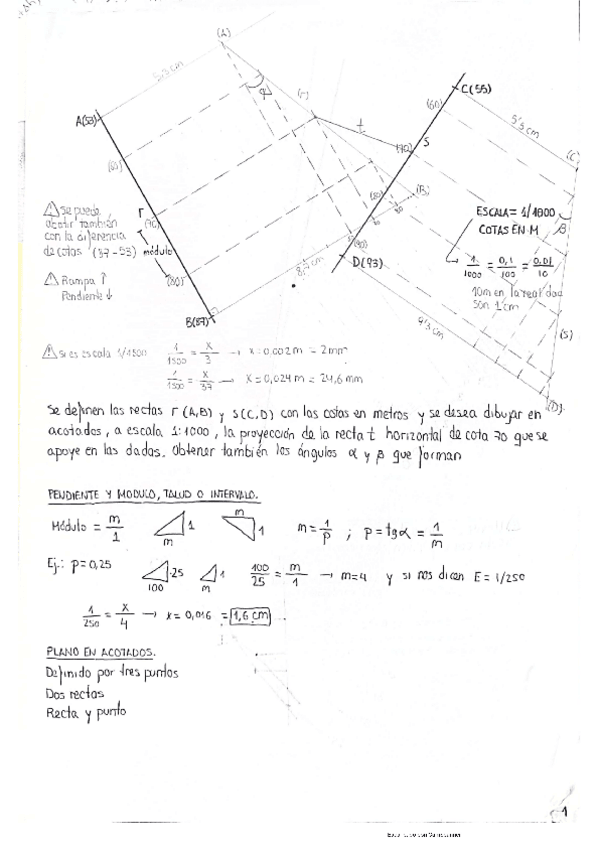 (A)
5,3 cm
α
(r)
C(55)
(60)
5'5 cm
A(53)
t
(70)
s
(C)
(60)
(80)
(B)
ESCALA = 1/1000
COTAS EN M
β
⚠ Se puede
abatir también
con la diferencia
de cotas (37-53)
r
(70)
módulo
(90)
D(93)
8,7 cm
1/1000 = 0,1/100 = 0,01/10
10m en la realidad
son 1 cm
⚠ Rampa ↑
Pendiente ↓
(80)
B(87)
9'3 cm
(S)
(D)
⚠ Si es escala 1/1500 1/1500 = x/3 → x = 0,002 m = 2 mm
1/1500 = x/37 → x = 0,024 m = 24,6 mm
Se definen las rectas r (A,B) y s (C,D) con las cotas en metros y se desea dibujar en
acotados, a escala 1:1000, la proyección de la recta t horizontal de cota 70 que se
apoye en las dadas. Obtener también los ángulos α y β que forman
PENDIENTE Y MODULO, TALUD O INTERVALO.
Módulo = m/1 1 m m 1 m = 1/p ; p = tgα = 1/m
Ej.: p = 0,25 25 100 1 m 100/25 = m/1 → m = 4 y si nos dicen E = 1/250
1/250 = x/4 → x = 0,016 = 1,6 cm
PLANO EN ACOTADOS.
Definido por tres puntos
Dos rectas
Recta y punto
1